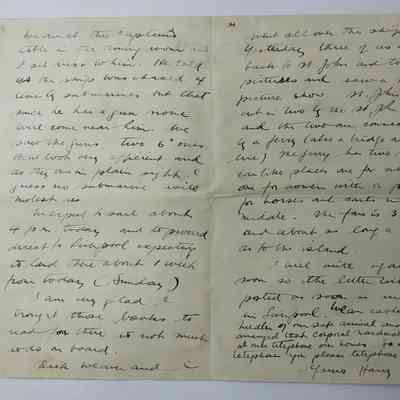 we are at the Captain's
table in the dining room and
I sit next to him. He told
us the ship was chased 4
times by submarines but that
since he has a gun none
will come near him. We
saw the guns, two 6" ones
that look very efficient and
as they are in plain sight I
guess no submarine will
molest us
We expect to sail about
4 p.m. today and to proceed
direct to Liverpool expecting
to land there about 1 week
from today (Sunday)
I am very glad I
brought those books to
read for there is not much
to do on board.
Dick Weaver and I
went all over the ship
yesterday three of us
back to St John and to
pictures and saw a
picture show. St John
cut in two by the St John
and the two are connec
by a ferry (also a bridge
live) The ferry has two
places are for
one for women with a
for horses and carts in
middle. The fare is 3
and about as long a
as to the island
I will write again
soon so the letter will
posted as soon as
in Liverpool.
of our safe arrival and
arranged that
at our telephone our homes. So
telephone you please telephone
Yours Harry